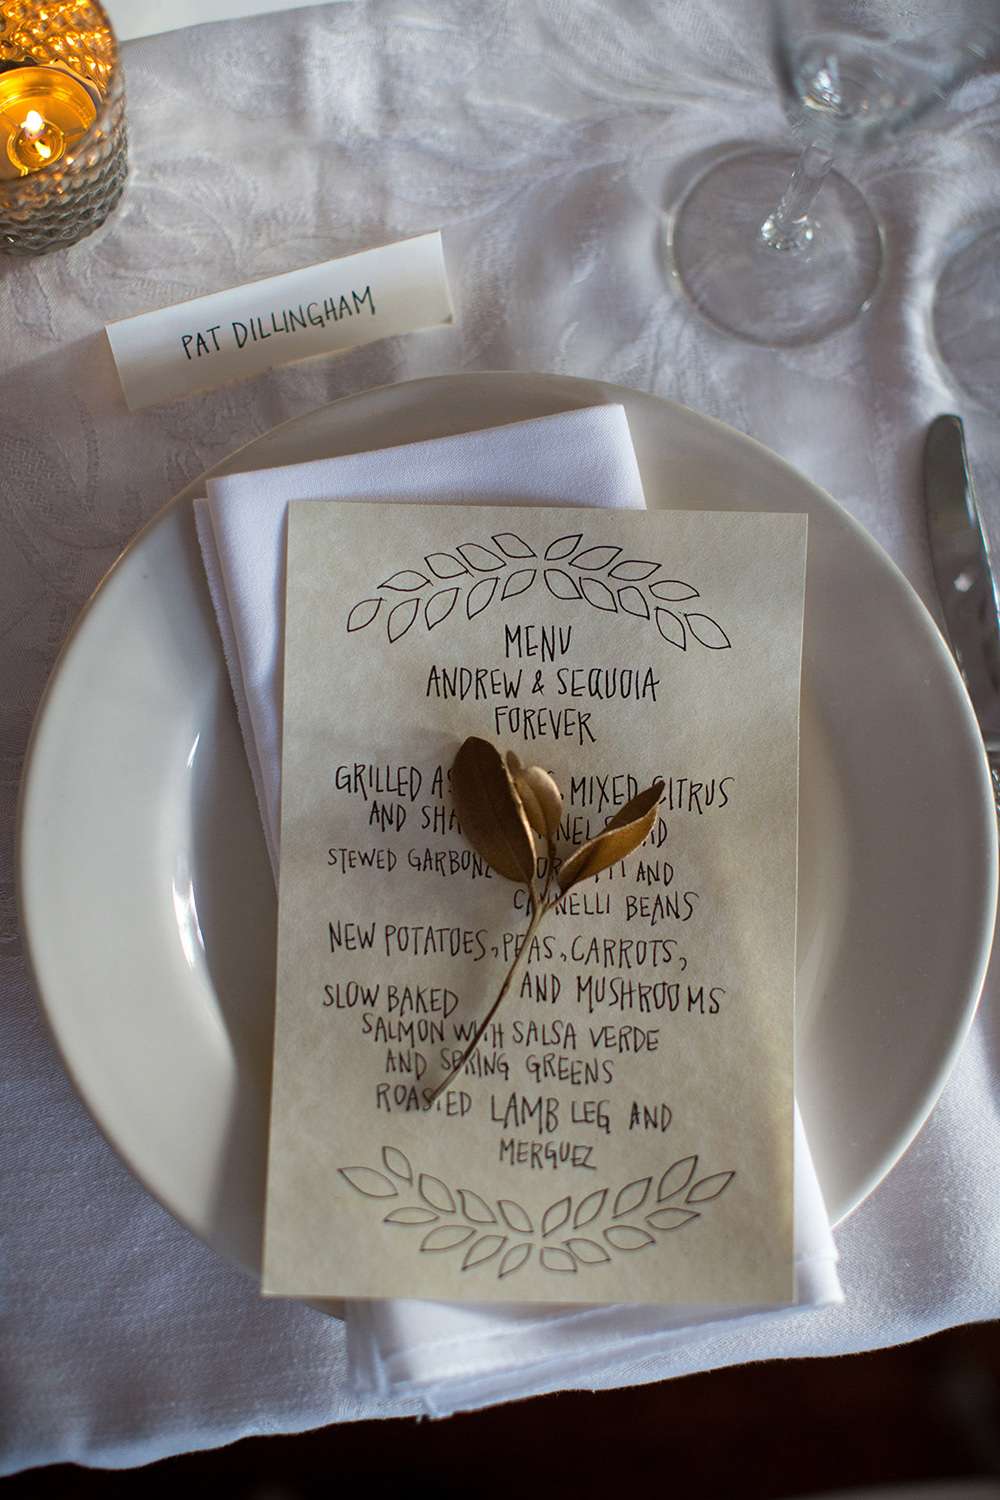 PAT DILLINGHAM
MENU
ANDREW & SEQUOIA
FOREVER
GRILLED MIXED CITRUS
AND
STEWED AND
CANNELLI BEANS
NEW POTATOES, PEAS, CARROTS,
AND MUSHROOMS
SLOW BAKED
SALMON WITH SALSA VERDE
AND SPRING GREENS
ROASTED LAMB LEG AND
MERGUEZ